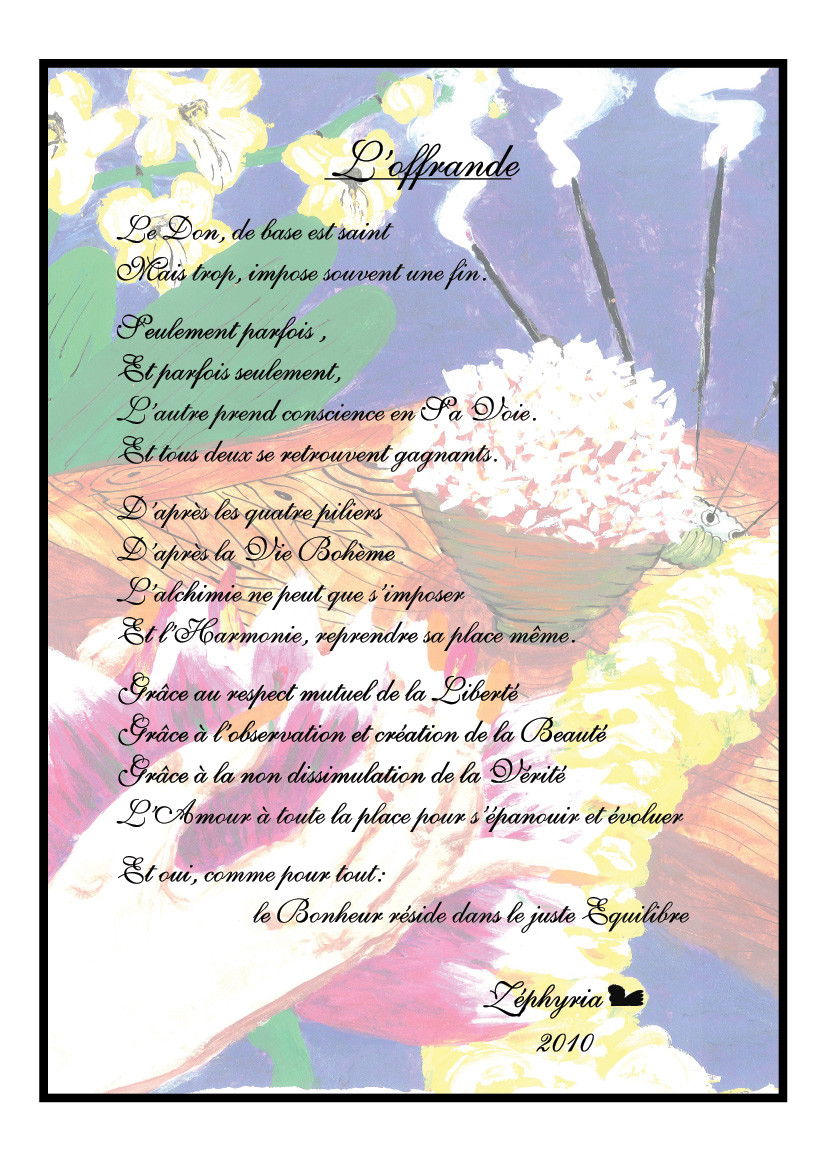 L'offrande
Le Don, de base est saint
Mais trop, impose souvent une fin.
Seulement parfois ,
Et parfois seulement,
L'autre prend conscience en Sa Voie.
Et tous deux se retrouvent gagnants.
D'après les quatre piliers
D'après la Vie Bohème
L'alchimie ne peut que s'imposer
Et l'Harmonie, reprendre sa place même.
Grâce au respect mutuel de la Liberté
Grâce à l'observation et création de la Beauté
Grâce à la non dissimulation de la Vérité
L'Amour à toute la place pour s'épanouir et évoluer
Et oui, comme pour tout:
le Bonheur réside dans le juste Equilibre
Zéphyria
2010